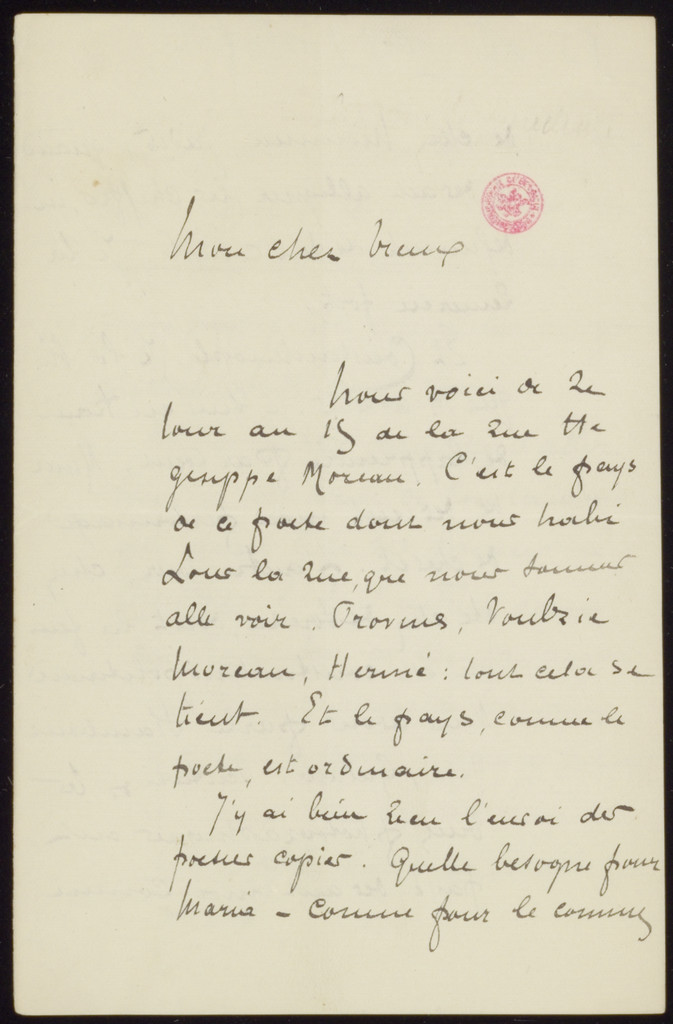 Mon cher vieux
Nous voici de re
tour au 15 de la rue He
gesippe Moreau. C'est le pays
de ce poete dont nous habi
tons la rue, que nous sommes
allé voir. Provins, Voulzie
Moreau, Hermé : tout cela se
tient. Et le pays, comme le
poete, est ordinaire.
J'y ai bien recu l'envoi des
poesies copiées. Quelle besogne pour
Maria – comme pour le commis